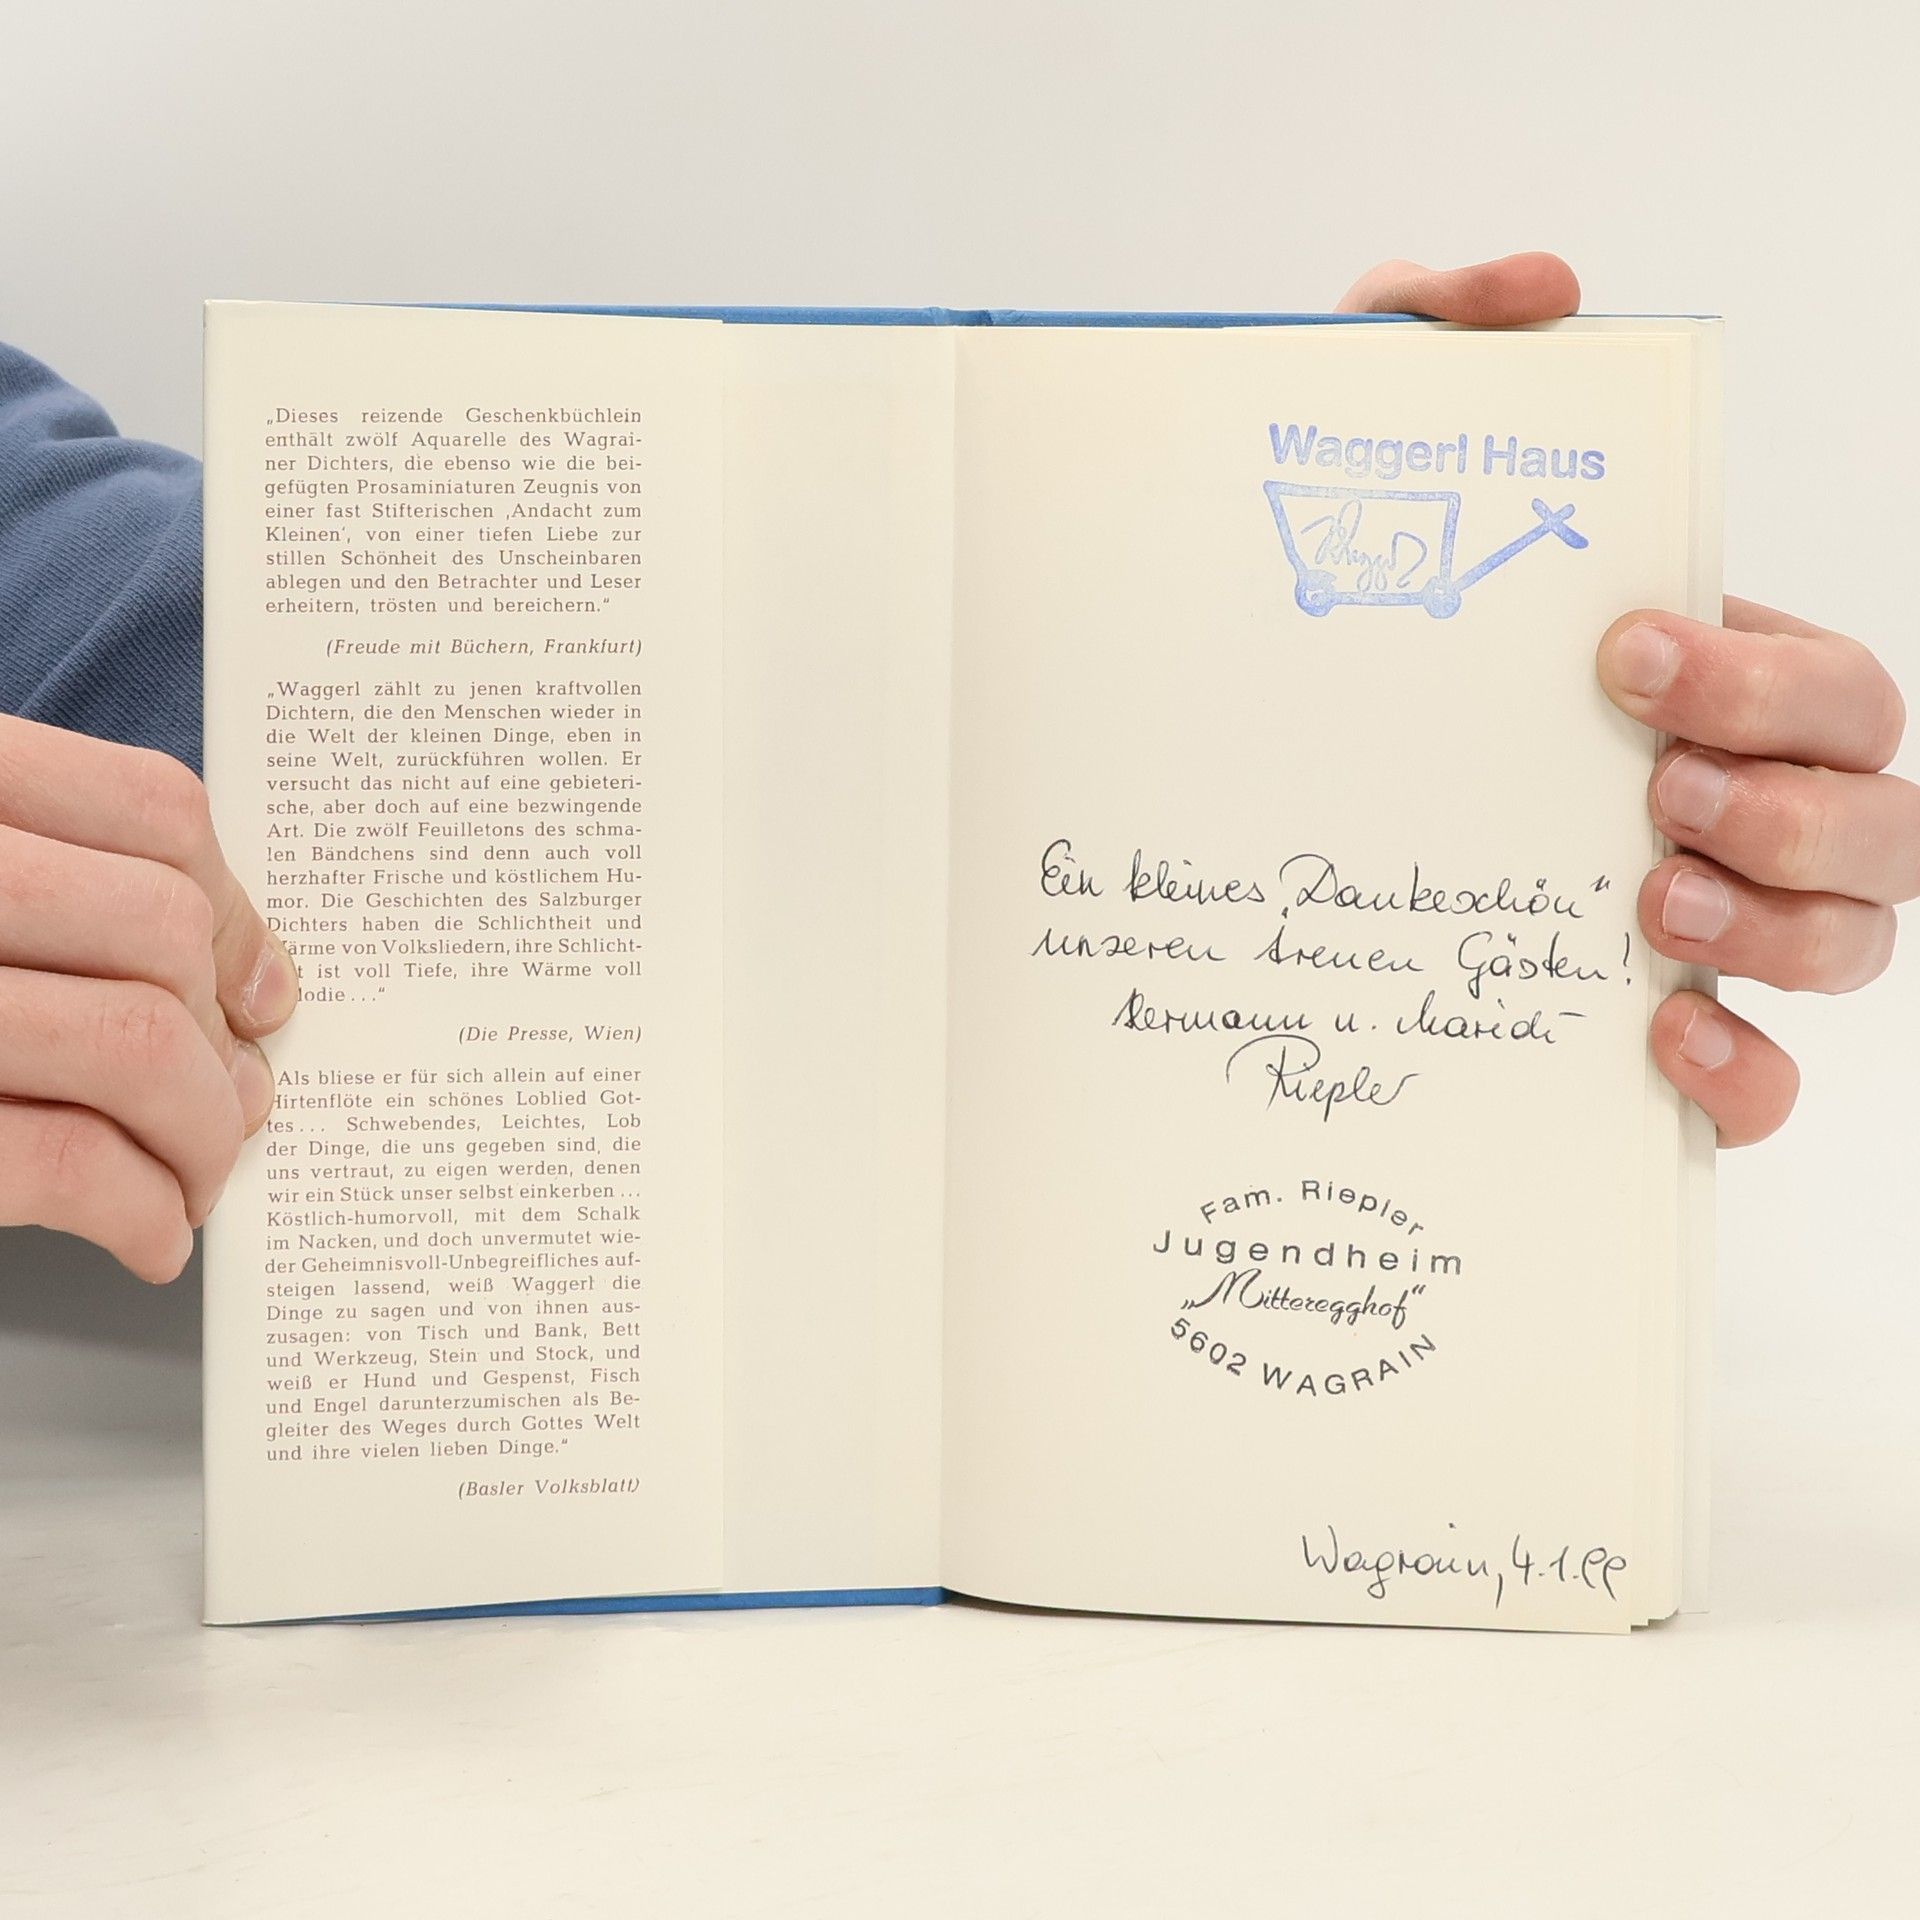 „Dieses reizende Geschenkbüchlein
enthält zwölf Aquarelle des Wagrai-
ner Dichters, die ebenso wie die bei-
gefügten Prosaminiaturen Zeugnis von
einer fast Stifterischen ‚Andacht zum
Kleinen‘, von einer tiefen Liebe zur
stillen Schönheit des Unscheinbaren
ablegen und den Betrachter und Leser
erheitern, trösten und bereichern.“
(Freude mit Büchern, Frankfurt)
„Waggerl zählt zu jenen kraftvollen
Dichtern, die den Menschen wieder in
die Welt der kleinen Dinge, eben in
seine Welt, zurückführen wollen. Er
versucht das nicht auf eine gebieteri-
sche, aber doch auf eine bezwingende
Art. Die zwölf Feuilletons des schma-
len Bändchens sind denn auch voll
herzhafter Frische und köstlichem Hu-
mor. Die Geschichten des Salzburger
Dichters haben die Schlichtheit und
ärme von Volksliedern, ihre Schlicht-
t ist voll Tiefe, ihre Wärme voll
lodie . . .“
(Die Presse, Wien)
Als bliese er für sich allein auf einer
Hirtenflöte ein schönes Loblied Got-
tes . . . Schwebendes, Leichtes, Lob
der Dinge, die uns gegeben sind, die
uns vertraut, zu eigen werden, denen
wir ein Stück unser selbst einkerben . . .
Köstlich-humorvoll, mit dem Schalk
im Nacken, und doch unvermutet wie-
der Geheimnisvoll-Unbegreifliches auf-
steigen lassend, weiß Waggerl die
Dinge zu sagen und von ihnen aus-
zusagen: von Tisch und Bank, Bett
und Werkzeug, Stein und Stock, und
weiß er Hund und Gespenst, Fisch
und Engel darunterzumischen als Be-
gleiter des Weges durch Gottes Welt
und ihre vielen lieben Dinge.“
(Basler Volksblatt)
Waggerl Haus
Ein kleines „Dankeschön“
unseren treuen Gästen!
Hermann u. Maridi
Riepler
Fam. Riepler
Jugendheim
„Mitteregghof“
5602 WAGRAIN
Wagrain, 4.1.99